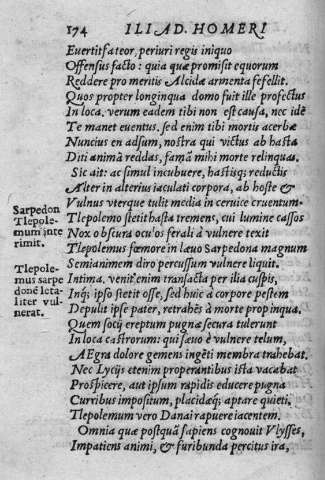 174 ILIAD. HOMERI
Euertit fateor, periuri regis iniquo
Offensus facto: quia quæ promisit equorum
Reddere pro meritis Alcidæ armenta fefellit.
Quos propter longinqua domo fuit ille profectus
In loca. verum eadem tibi non est causa, nec idē
Te manet euentus. sed enim tibi mortis acerbæ
Nuncius en adsum, nostra qui victus ab hasta
Diti animā reddas, famā mihi morte relinquas.
Sic ait: ac simul incubuere, hastisq; reductis
Alter in alterius iaculati corpora, ab hoste &
Vulnus vterque tulit media in ceruice cruentum.
Tlepolemo stetit hasta tremens, cui lumine cassos
Nox obscura oculos ferali à vulnere texit
Tlepolemus fœmore in læuo Sarpedona magnum
Semianimem diro percussum vulnere liquit.
Intima, venit enim transacta per ilia cuspis,
Inq; ipso stetit osse, sed huic à corpore pestem
Depulit ipse pater, retrahēs à morte propinqua.
Quem socij ereptum pugna secura tulerunt
In loca castrorum: qui sæuo è vulnere telum,
AEgra dolore gemens ingēti membra trahebat.
Nec Lycijs etenim properantibus ista vacabat
Prospicere, aut ipsum rapidis educere pugna
Curribus impositum, placidaeq; aptare quieti.
Tlepolemum vero Danai rapuere iacentem.
Omnia quæ postquā sapiens cognouit Vlysses,
Impatiens animi, & furibunda percitus ira,
Sarpedon
Tlepole-
mum inte
rimit.
Tlepole-
mus sarpe
donē leta-
liter vul-
nerat.